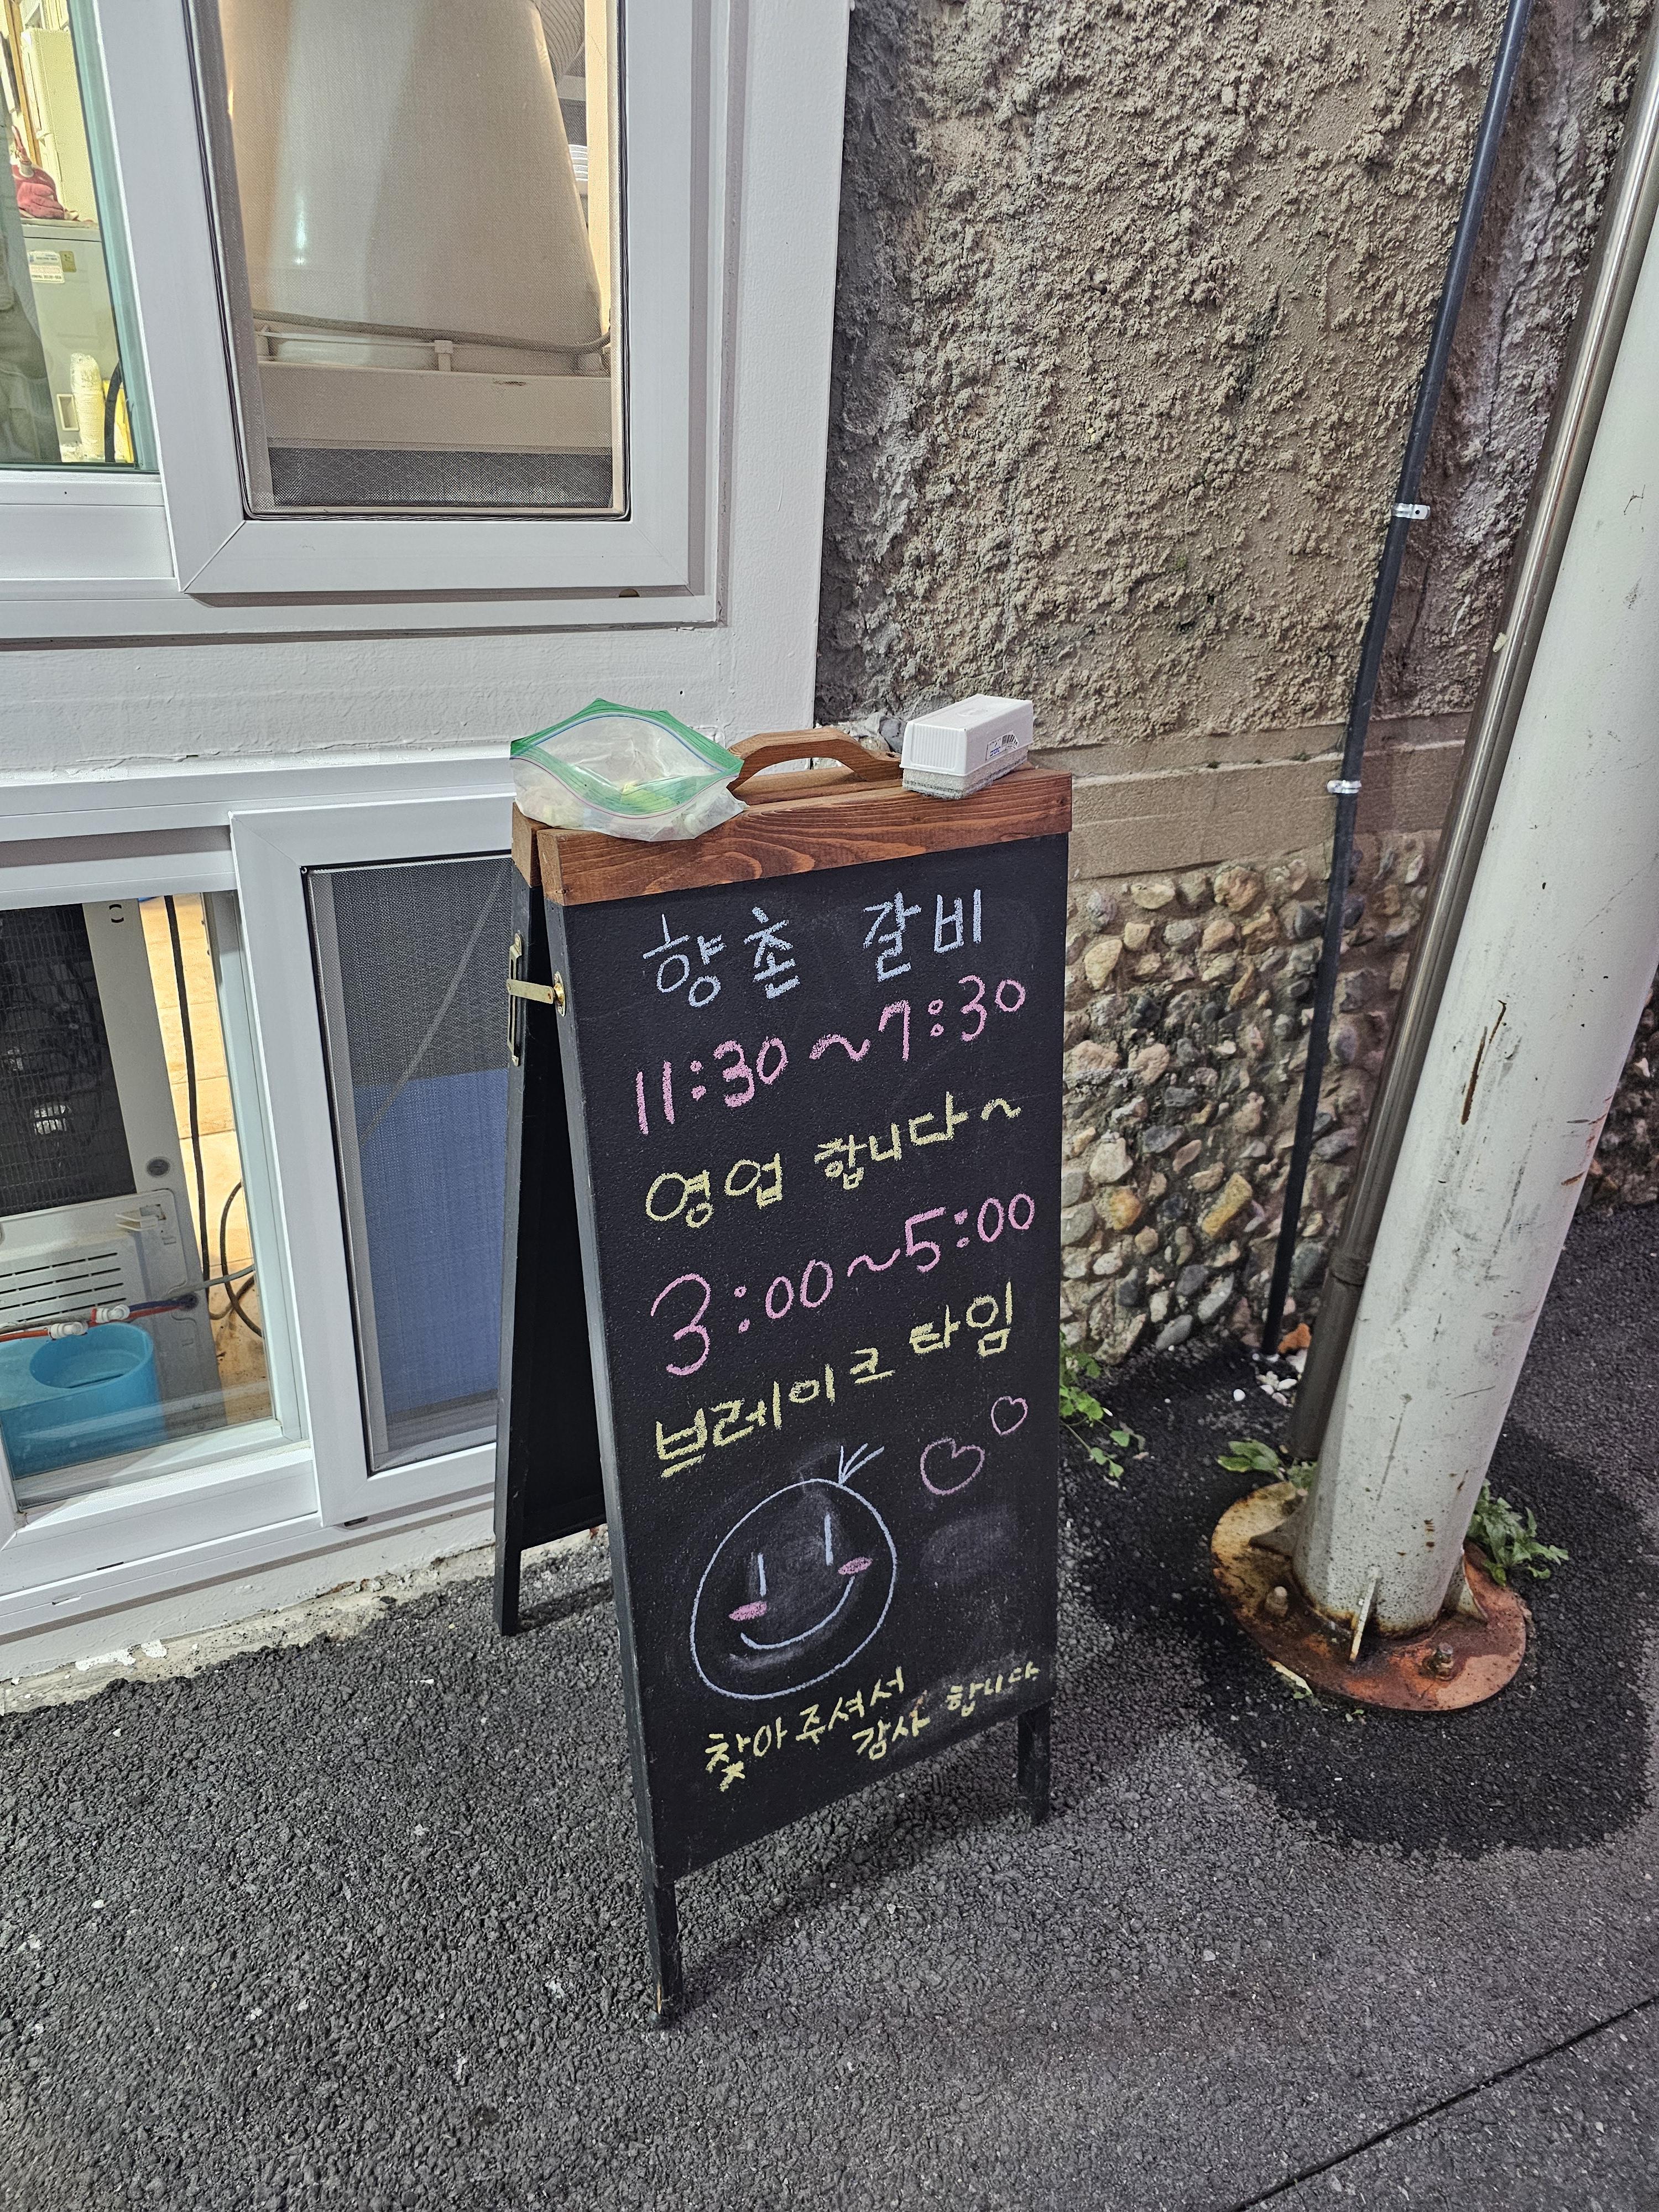 향촌 갈비
11:30~7:30
영업 합니다~
3:00~5:00
브레이크 타임
찾아주셔서
감사 합니다